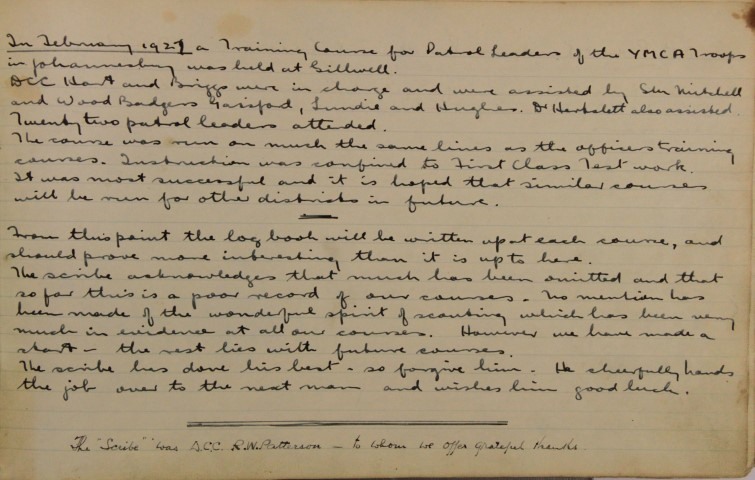 In February 1927 a Training Course for Patrol Leaders of the YMCA Troops
in Johannesburg was held at Gillwell.
DCC Hart and Briggs were in charge and were assisted by Sm Mitchell
and Wood Badgers Gaisford, Lundie and Hughes. Dr also assisted.
Twenty two patrol leaders attended.
The course was run on much the same lines as the officers training
courses. Instruction was confined to First Class Test work.
It was most successful and it is hoped that similar courses
will be run for other districts in future.
From this point the log book will be written up at each course, and
should prove more interesting than it is up to here.
The scribe acknowledges that much has been omitted and that
so far this is a poor record of our courses - no mention has
been made of the wonderful spirit of scouting which has been very
much in evidence at all our courses. However we have made a
start - the rest lies with future courses.
The scribe has done his best - so forgive him. He cheerfully hands
the job over to the next man and wishes him good luck.
The "Scribe" was D.C.C. R.W. Patterson - to whom we offer grateful thanks.